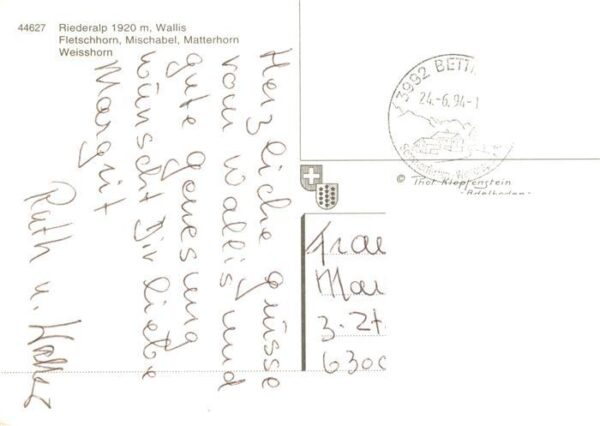 44627 Riederalp 1920 m, Wallis
Fletschhorn, Mischabel, Matterhorn
Weisshorn
Herzliche Grüsse
vom Wallis und
gute Genesung
wünscht Dir liebe
Margrit
Ruth u.
3992 BETT
24.-6.94-1
© Thor Klopfenstein
Adelboden
Frau
Mar
3. Zt.
6300